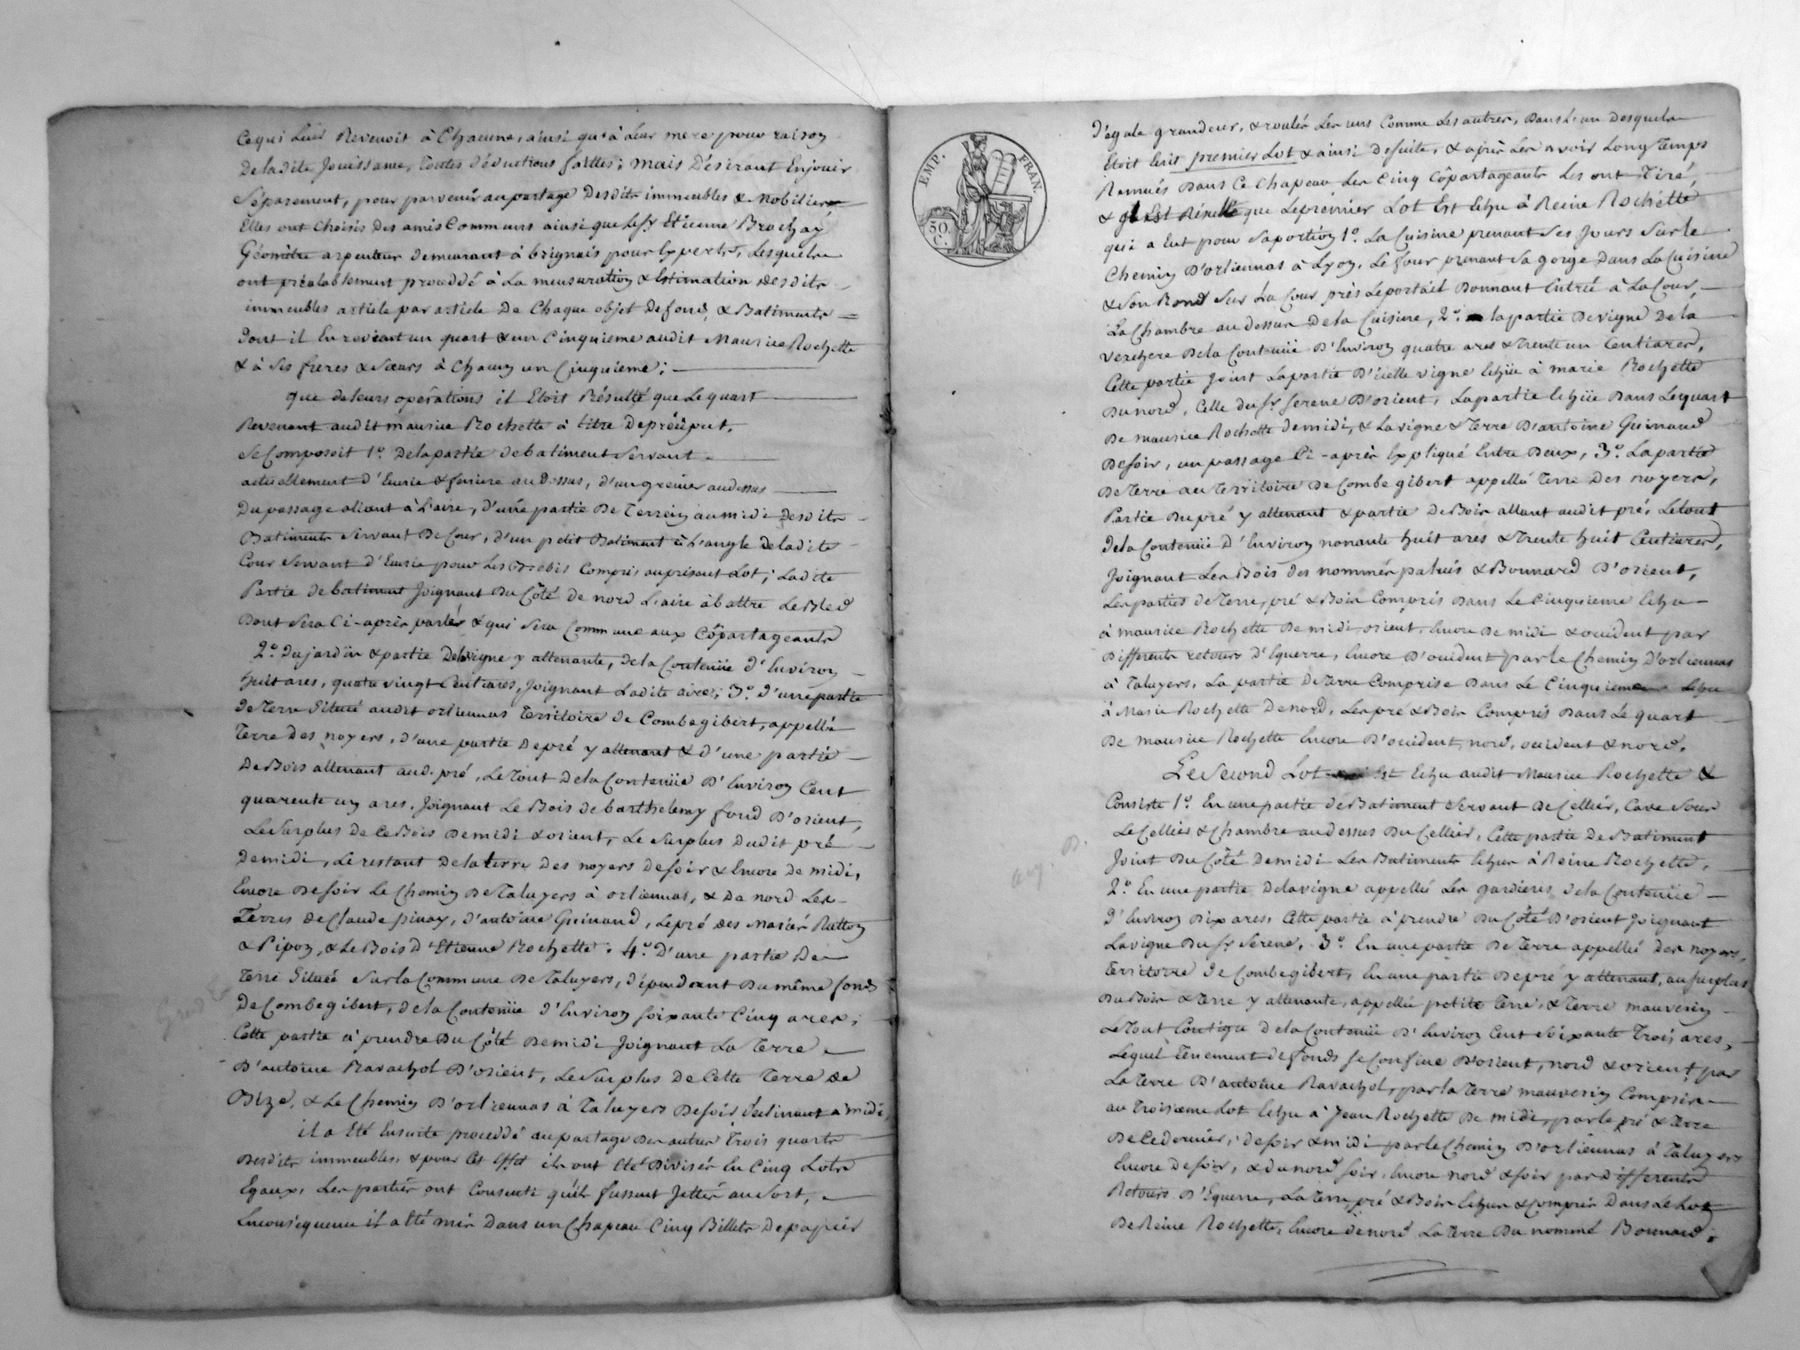 Cequi Leur Revenoit à Chacune, ainsi qu'à Leur mere pour raison
de ladite Jouissance, toutes déductions faittes; mais Désirant Enjouir
Séparement, pour parvenir au partage Desdits immeubles & Mobiliers
Elles ont Choisis Des amis Communs ainsi que Le Sr Etienne Brochay
Géomètre arpenteur demeurant à brignais pour Experts, Lesquels
ont préalablement proceddé à La mensuration & Estimation desdits
immeubles article par article De Chaque objet de fond, & Batiments
dont il En revient un quart & un Cinquieme audit Maurice Rochette
& à Ses freres & Sœurs à Chacun un Cinquième;
que de leurs opérations il Etoit Résulté que Le quart
Revenant audit maurice Rochette à titre De préciput,
Se Composoit 1o. De la partie de batiment Servant
actuellement d'Ecurie & feniere au Dessus, d'un grenier audessus
Du passage allant à L'aire, d'une partie De Terrein au midi Desdits
Batiments Servant De Cour, d'un petit Batiment à L'angle de ladite
Cour Servant d'Ecurie pour Les Brebis Compris au présent Lot; Ladite
Partie de batiment Joignant Du Côté de nord L'aire à battre Le Bled
Dont Sera Ci-après parlés & qui Sera Commune aux Côpartageants
2o. du jardin & partie De vigne y attenante, de la Contenüe d'Environ
huit ares, quatre vingt Centiares, Joignant Ladite aire; 3o. d'une partie
de Terre Située audit orliennas Territoire de Combegibert, appellée
Terre Des noyers, d'une partie De pré y attenant & d'une partie
De Bois attenant aud. pré, Le Tout De la Contenüe D'Environ Cent
quarente un ares, Joignant Le Bois de barthelemy fond D'orient,
Le Surplus de Ce Bois De midi & orient, Le Surplus Dudit pré
De midi, Le restant De la terre Des noyers de soir & Encore de midi,
Encore De soir Le Chemin De Taluyers à orliennas, & De nord Les
Terres de Claude pinay, d'antoine Guinand, Le pré des Mariés Ratton
& Pipon, & Le Bois d'Etienne Rochette. 4o. D'une partie De
Terre Située Sur la Commune De Taluyers, dépendant Du même fond
De Combegibert, de la Contenüe d'Environ Soixante Cinq ares;
Cette partie à prendre Du Côté De midi Joignant La Terre
D'antoine Ravachol D'orient, Le Surplus De Cette Terre De
Bize, & Le Chemin D'orliennas à Taluyers De soir déclinant à midi,
il a Eté Ensuite proceddé au partage Des autres Trois quarts
Desdits immeubles, & pour Cet Effet ils ont Eté Divisés En Cinq Lots
Egaux, Les parties ont Consenti qu'ils fussent Jettés au Sort,
Enconséquence il a été mis Dans un Chapeau Cinq Billets De papier
EMP. FRAN.
50 C.
d'égale grandeur, & roulés Les uns Comme Les autres, Dans L'un desquels
Etoit Ecrit premier Lot & ainsi De suite, & après Les avoir Long Temps
Remués Dans Ce Chapeau Les Cinq Côpartageants Les ont Tiré,
& il Est Résulté que Le premier Lot Est Echu à Reine Rochette,
qui a Eut pour Sa portion 1o. La Cuisine prenant Ses Jours Sur Le
Chemin D'orliennas à Lyon, Le four prenant Sa gorge Dans La Cuisine
& Son Rond Sur La Cour près Le portail Donnant Entrée à La Cour,
La Chambre au dessus De la Cuisine, 2o. la partie De vigne De la
verchere De la Contenüe D'Environ quatre ares & Trente un Centiares,
Cette partie Joint La partie D'icelle vigne Echüe à marie Rochette
Du nord, Celle du Sr Serene D'orient, La partie Echüe Dans Le quart
De maurice Rochette de midi, & La vigne & Terre D'antoine Guinand
De soir, un passage Ci-après Expliqué Entre Deux, 3o. La partie
De Terre au Territoire De Combe gibert appellé Terre Des noyers,
Partie Du pré y attenant & partie De Bois allant audit pré, Le tout
de la Contenüe d'Environ nonante huit ares & Trente huit Centiares,
Joignant Les Bois des nommés palués & Bonnard D'orient,
Les parties de Terre, pré & Bois Compris Dans Le Cinquieme Echu
à maurice Rochette De midi, orient, Encore De midi & occident par
Differents retours d'Equerre, Encore D'occident par le Chemin D'orliennas
à Taluyers, La partie De Terre Comprise Dans Le Cinquieme Echu
à Marie Rochette De nord, Les pré & Bois Compris Dans Le quart
De maurice Rochette Encore D'occident, nord, occident & nord.
Le Second Lot Est Echu audit Maurice Rochette &
Consiste 1o. En une partie de Batiment Servant De Cellier, Cave Sous
Le Cellier & Chambre au dessus Du Cellier, Cette partie De Batiment
Joint Du Côté De midi Les Batiments Echus à Reine Rochette,
2o. En une partie De la vigne appellée Les gardieres de la Contenüe
d'Environ Dix ares, Cette partie à prendre Du Côté D'orient Joignant
La vigne Du Sr Serene, 3o. En une partie De Terre appellée Des noyers,
Territoire de Combegibert, En une partie De pré y attenant, au Surplus
Du Bois & Terre y attenante, appellée petite Terre, & Terre mauvesin
Le Tout Contigu De la Contenüe D'Environ Cent Soixante Trois ares,
Lequel Tenement de fonds Se Confine D'orient, nord & orient, par
La Terre D'antoine Ravachol, par la Terre mauvesin Comprise
au Troisieme Lot Echu à Jean Rochette De midi, par le pré & Terre
De Ce dernier; De soir & midi par le Chemin D'orliennas à Taluyers
Encore De soir, & du nord soir, Encore nord & soir par differents
Retours D'Equerre, La Terre, pré & Bois Echus & Compris Dans Le Lot
De Reine Rochette, Encore de nord La Terre Du nommé Bonnard;